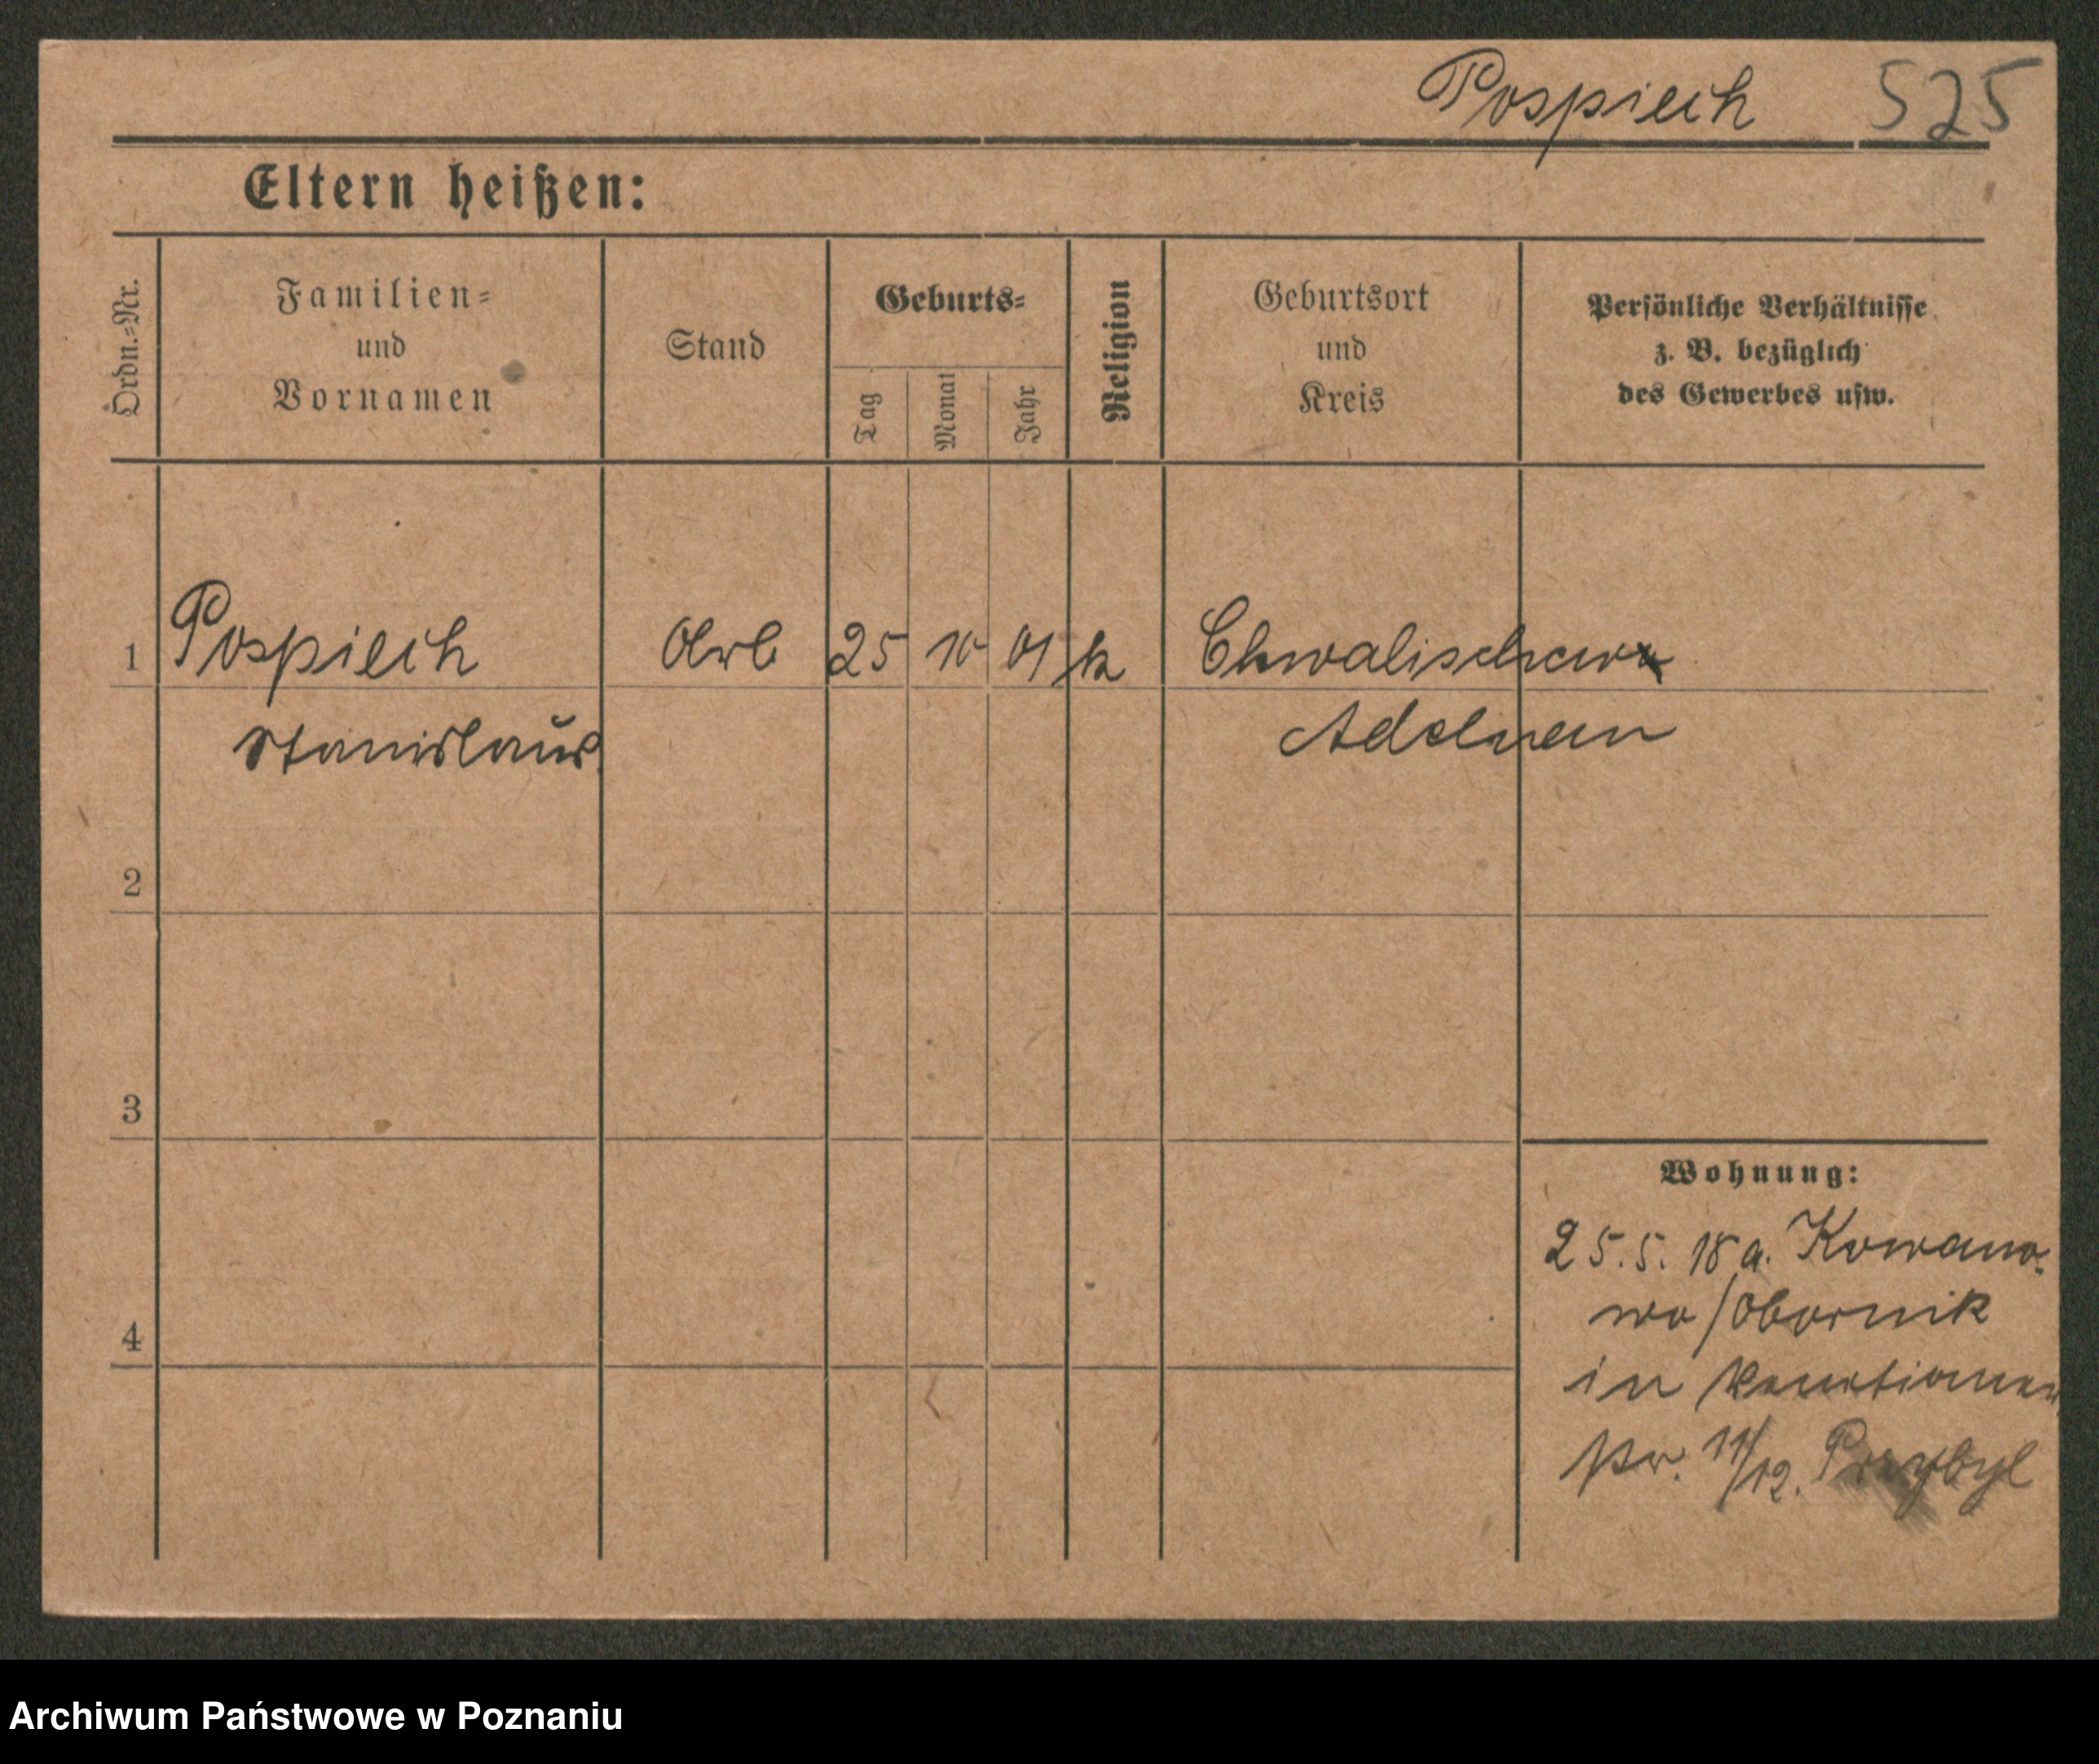 Pospiech 525
Eltern heißen:
Ordn.=Nr.
Familien=
und
Vornamen
Stand
Geburts=
Tag
Monat
Jahr
Religion
Geburtsort
und
Kreis
Persönliche Verhältnisse
z. B. bezüglich
des Gewerbes usw.
1 Pospiech Arb 25 10 01 k Chwalischew
Stanislaus Adelnau
2
3
4
Wohnung:
25.5. 18 a. Kowano-
wo/Obornik
in
Pr. 11/12. Przybyl
Archiwum Państwowe w Poznaniu